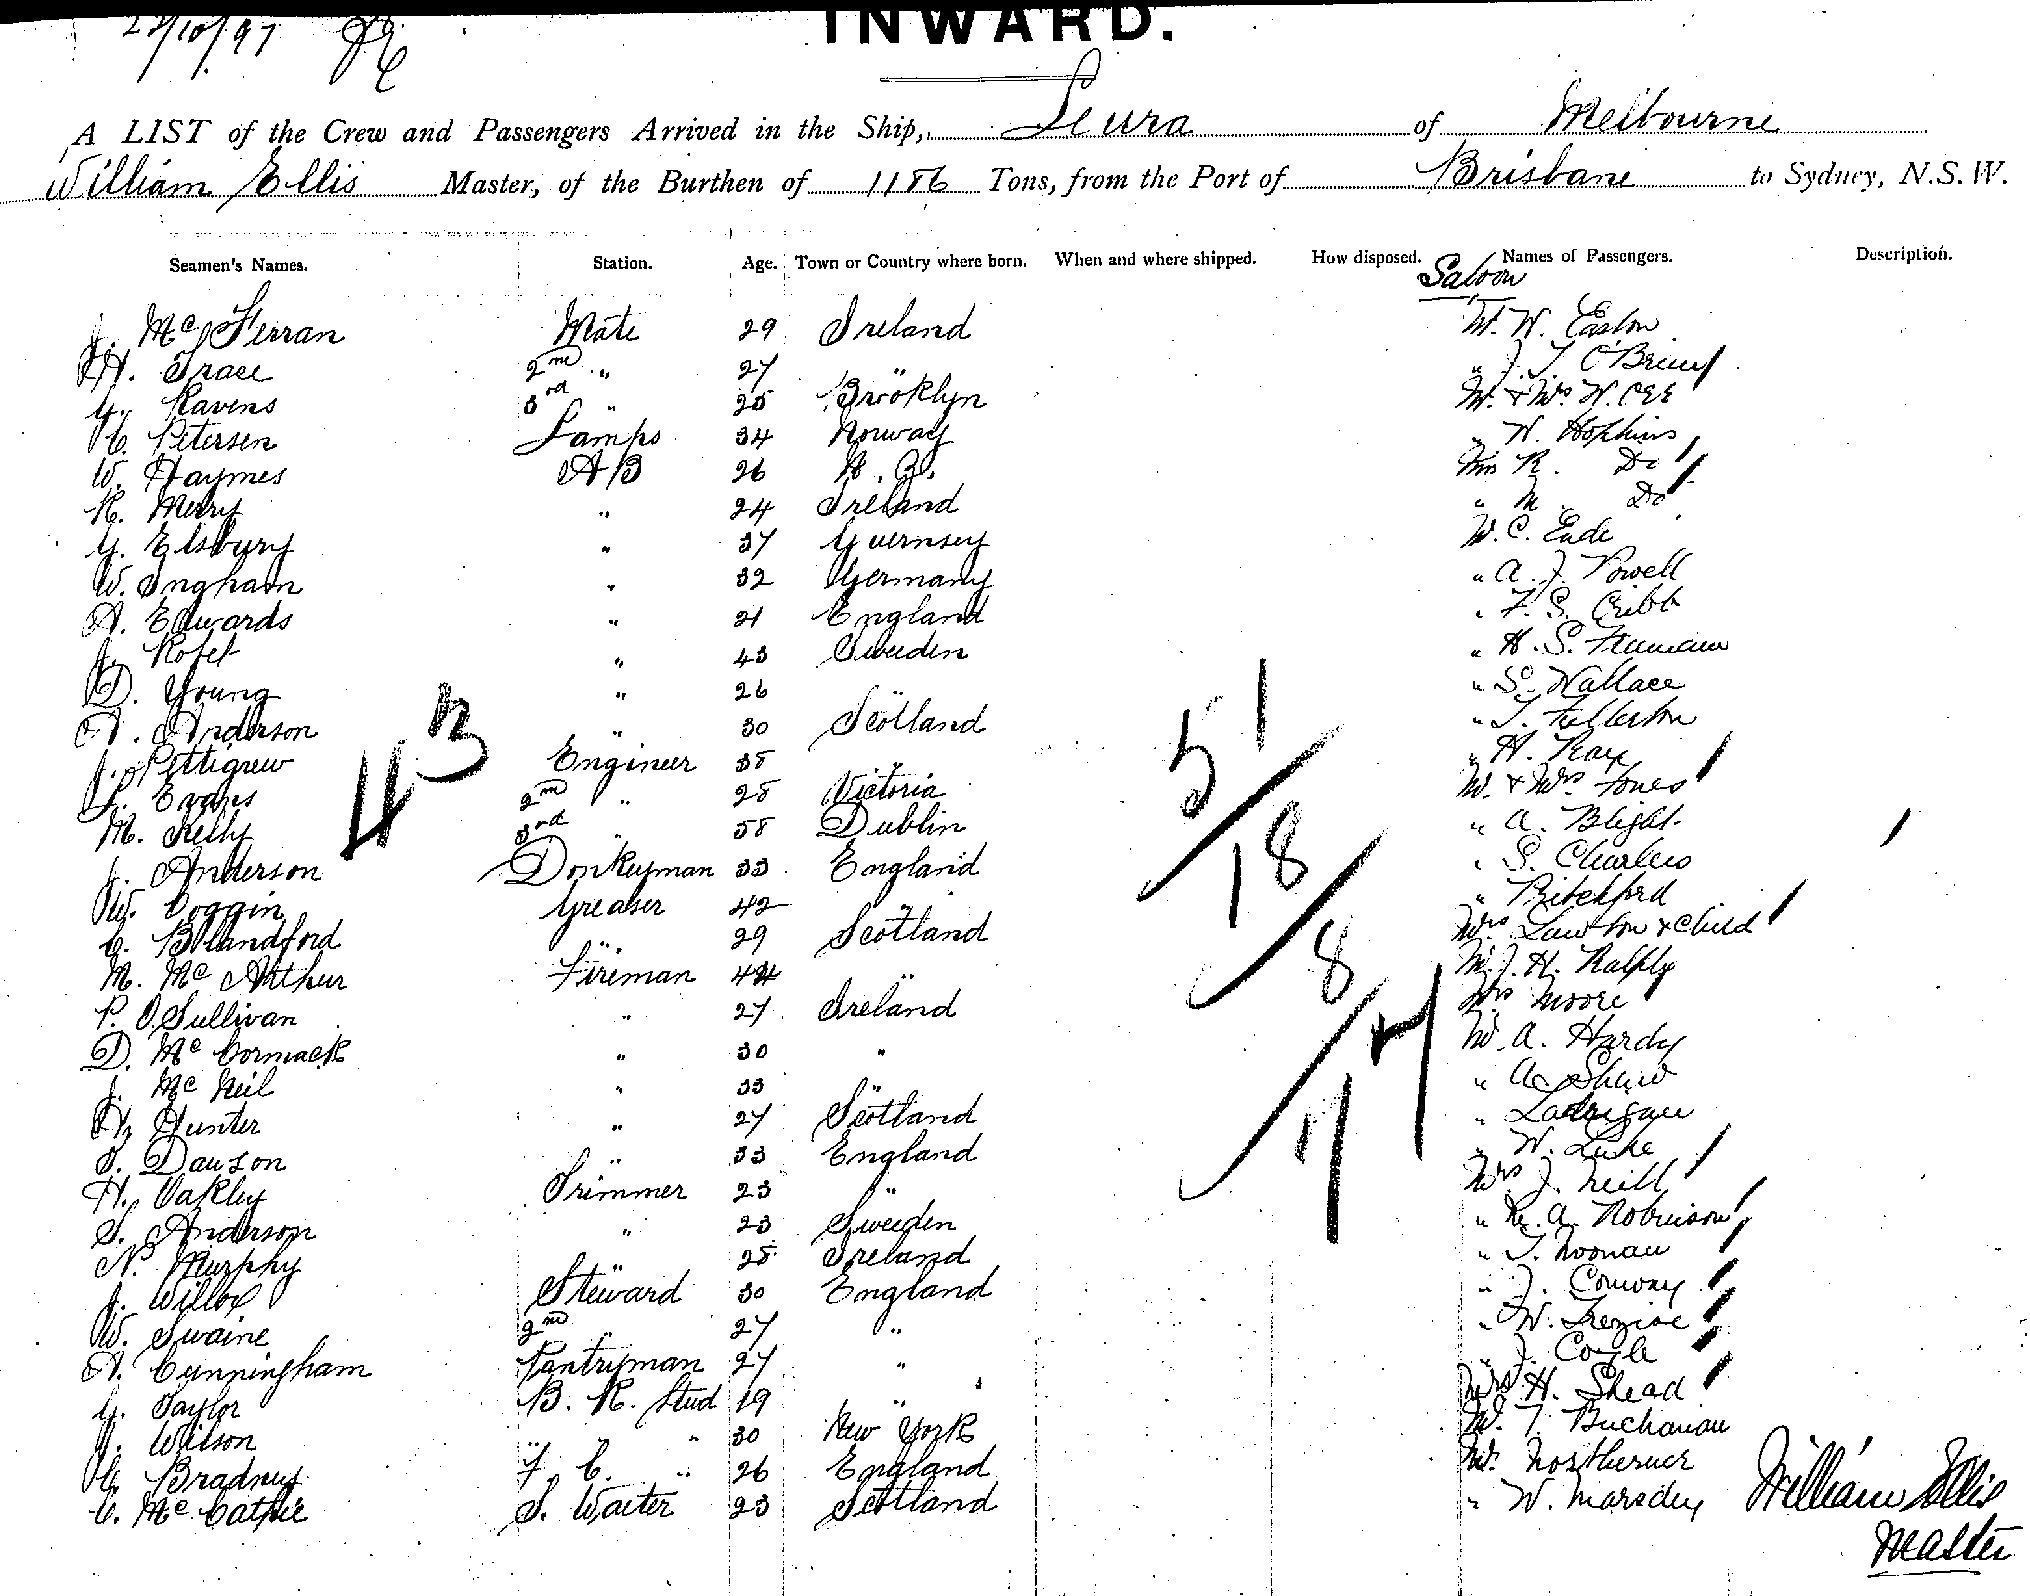 INWARD.
A LIST of the Crew and Passengers Arrived in the Ship, Leura of Melbourne
William Ellis Master, of the Burthen of 1186 Tons, from the Port of Brisbane to Sydney, N.S.W.
Seamen's Names. Station. Age. Town or Country where born. When and where shipped. How disposed. Names of Passengers. Description.
Saloon
J. Mc Ferran Mate 29 Ireland Mr. W. Easton
H. Trace 2nd " 27 " " J. T. O'Brien
G. Ravens 3rd " 25 Brooklyn Mr. & Mrs W.
C. Petersen Lamps 34 Norway " W. Hopkins
W. Haymes AB 26 Miss R. Do
R. Merry " 24 Ireland " M. Do
G. Elsbury " 37 Guernsey Mr. C. Eade
W. Ingham " 32 Germany " A. J. Powell
A. Edwards " 21 England " F. S. Cribb
J. " 43 Sweden " H. S. Freeman
D. Young " 26 " " S. Wallace
A. Anderson " 30 Scotland " T. Fullerton
J. Pettigrew Engineer 38 " " H. Ray
L. Evans 2nd " 28 Victoria Mr. & Mrs Jones
M. Kelly 3rd " 58 Dublin " A. Blight
J. Anderson Donkeyman 33 England " S. Charles
W. Coggin Greaser 42 " " Pritchford
C. Blandford " 29 Scotland Mrs Lawton & Child
M. Mc Arthur Fireman 44 " Mr. J. H. Ralph
P. O'Sullivan " 27 Ireland Mrs Moore
D. Mc Cormack " 30 " Mr. A. Hardy
J. Mc Neil " 33 " " A. Shaw
A. Hunter " 27 Scotland "
S. Dawson " 33 England " W. Luke
H. Oakley Trimmer 23 " Mrs J. Neill
S. Anderson " 23 Sweden " A. Robinson
N. Murphy " 28 Ireland " T. Noonan
J. Willox Steward 30 England " J. Conway
W. Swaine 2nd " 27 " " W. Trezise
A. Cunningham Pantryman 27 " " J. Coyle
G. Taylor B. R. Stud 19 " Mrs H. Shead
J. Wilson " " " 30 New York Mr. T. Buchanan
C. Bradney F. C. " 26 England Mr. Northerner
C. Mc Cathie S. Waiter 23 Scotland " W. Marsden
43
51
18
8
William Ellis
Master